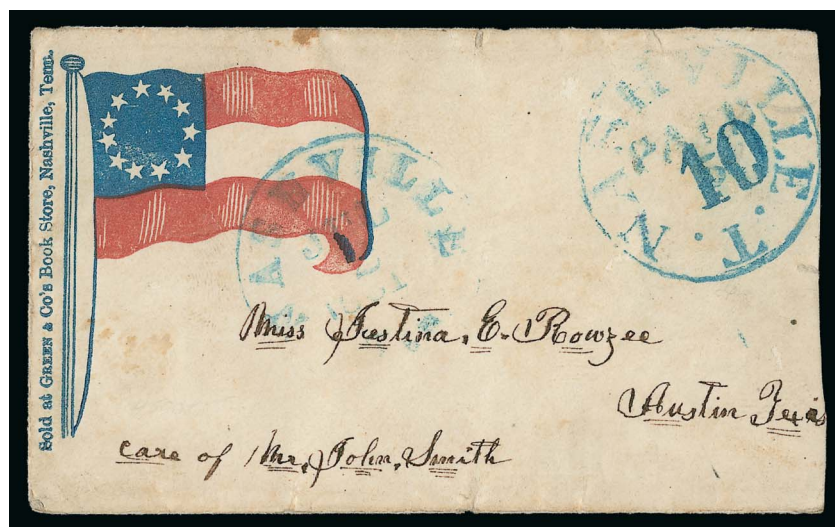 Sold at GREEN & Co's Book Store, Nashville, Tenn.
NASHVILLE . T .
PAID
10
NASHVILLE
Miss Justina, E. Rowzee
Austin Texas
care of Mr, John, Smith